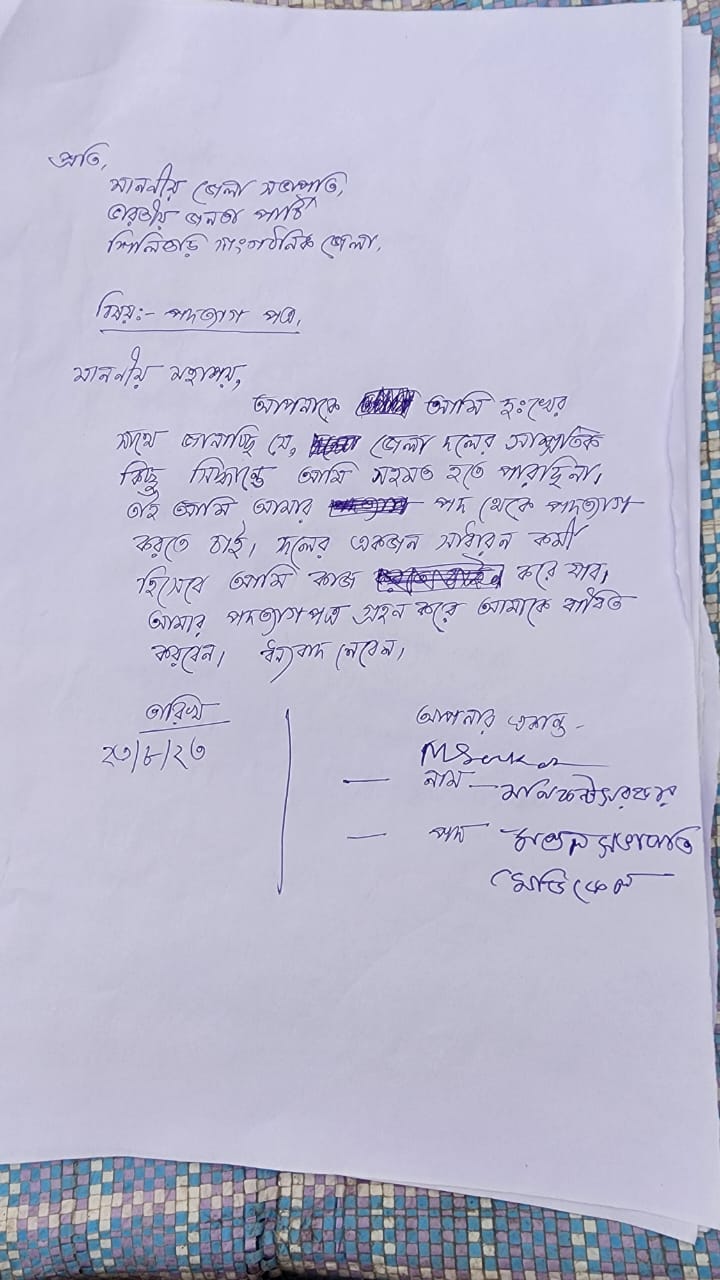 প্রতি,
মাননীয় জেলা সভাপতি,
ভারতীয় জনতা পার্টি
শিলিগুড়ি সাংগঠনিক জেলা,
বিষয়:- পদত্যাগ পত্র,
মাননীয় মহাশয়,
আপনাকে আমি দুঃখের
সাথে জানাচ্ছি যে, জেলা দলের সাম্প্রতিক
কিছু সিদ্ধান্তে আমি সহমত হতে পারছিনা,
তাই আমি আমার পদ থেকে পদত্যাগ
করতে চাই, দলের একজন সাধারন কর্মী
হিসেবে আমি কাজ করে যাব,
আমার পদত্যাগপত্র গ্রহন করে আমাকে বাধিত
করবেন, ধন্যবাদ নেবেন,
তারিখ
২৩/৮/২৩
আপনার একান্ত -
নাম -
পদ মণ্ডল সভাপতি
মেডিকেল